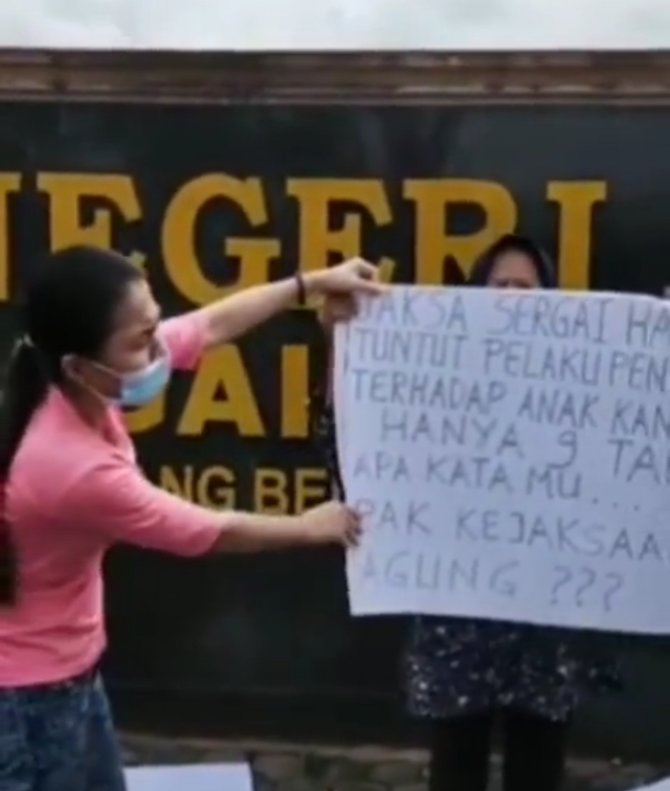 NEGERI
GAI
ANG BE
JAKSA SERGAI HA
TUNTUT PELAKU PEN
TERHADAP ANAK KAN
HANYA 9 TA
APA KATA MU....
PAK KEJAKSAA
AGUNG ???